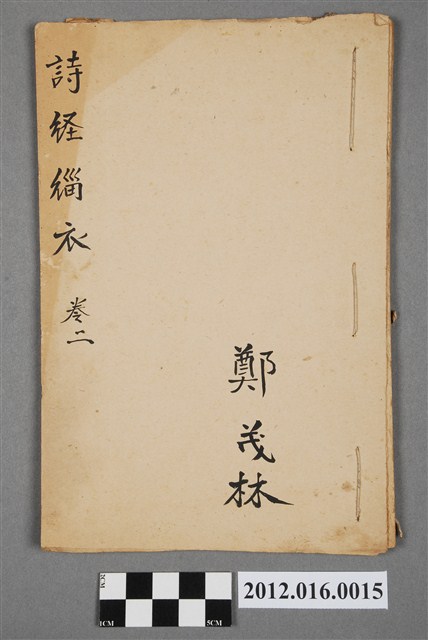 詩経緇衣 巻二
鄭茂林
2CM
1CM 5CM
2012.016.0015